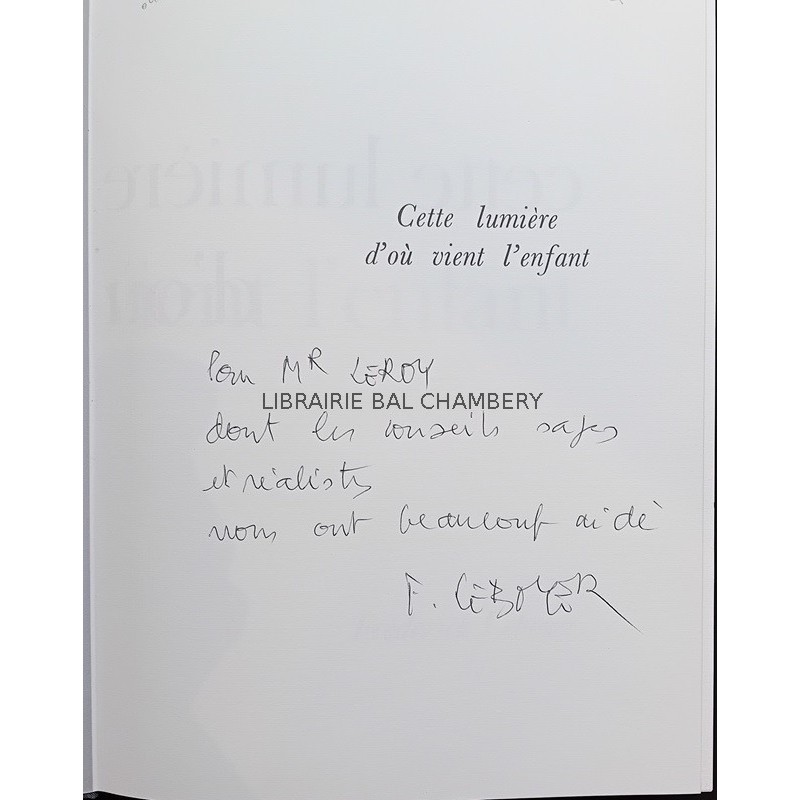 Cette lumière
d'où vient l'enfant
Pour MR LEROY
LIBRAIRIE BAL CHAMBERY
dont les conseils sages
et réalistes
nous ont beaucoup aidé
F. LEBOYER